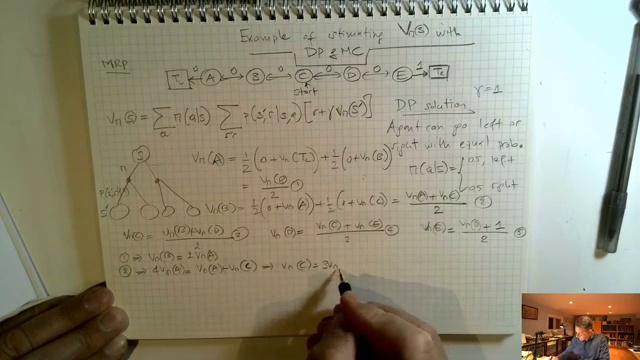 Example of estimating Vπ(s) with
DP & MC
MRP
T 0 A 0 B 0 C 0 D 0 E 1 T
start
Vπ(s) = Σa π(a|s) Σs',r p(s',r|s,a) [r + γ Vπ(s')]
DP solution γ = 1
Agent can go left or
right with equal prob.
π(a|s) = { 0.5, left
0.5 right
S
π
S'
Vπ(A) = 1/2 (0 + Vπ(T)) + 1/2 (0 + Vπ(B))
= Vπ(B)/2 ①
Vπ(B) = 1/2 (0 + Vπ(A)) + 1/2 (0 + Vπ(C)) = (Vπ(A) + Vπ(C))/2 ②
Vπ(C) = (Vπ(B) + Vπ(D))/2 Vπ(D) = (Vπ(C) + Vπ(E))/2 Vπ(E) = (Vπ(D) + 1)/2 ⑤
① ⇒ Vπ(B) = 2Vπ(A)
② ⇒ 4Vπ(A) = Vπ(A) + Vπ(C) ⇒ Vπ(C) = 3Vπ